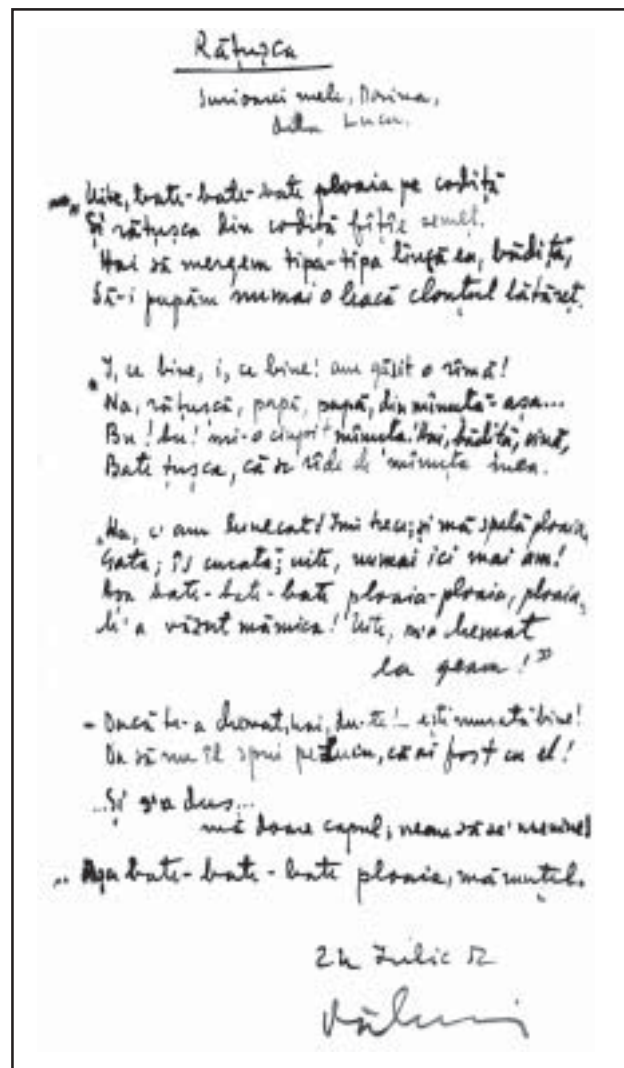 Rățușca
Surioarei mele, Dorina,
dela Lucu.
„Uite, bate-bate-bate ploaia pe codiță
Și rățușca din codiță fîțîie semeț.
Hai să mergem tipa-tipa lîngă ea, bădiță,
Să-i pupăm numai o leacă clonțul lătăreț.
„I, ce bine, i, ce bine! am găsit o rîmă!
Na, rățușcă, papă, papă, din mînuță-așa...
Bu! bu! mi-o ciupit mînuța! Hai, bădiță,
Bate țușca, că se rîde de mînuța mea.
„Ha, am lunecat! Îmi trece; și mă spală ploaia,
Gata; îs curată; uite, numai ici mai am!
Așa bate-bate-bate ploaia-ploaia, ploaia,
Ne-a văzut mămica! Uite, m'a chemat
la geam!”
- Dacă te-a chemat, hai, du-te! - ești murată bine!
Da să nu îl spui pe Lucu, că ai fost cu el!
...Și s'a dus...
mă doare capul;
.. Așa bate-bate-bate ploaia, mărunțel.
22 Iulie 52